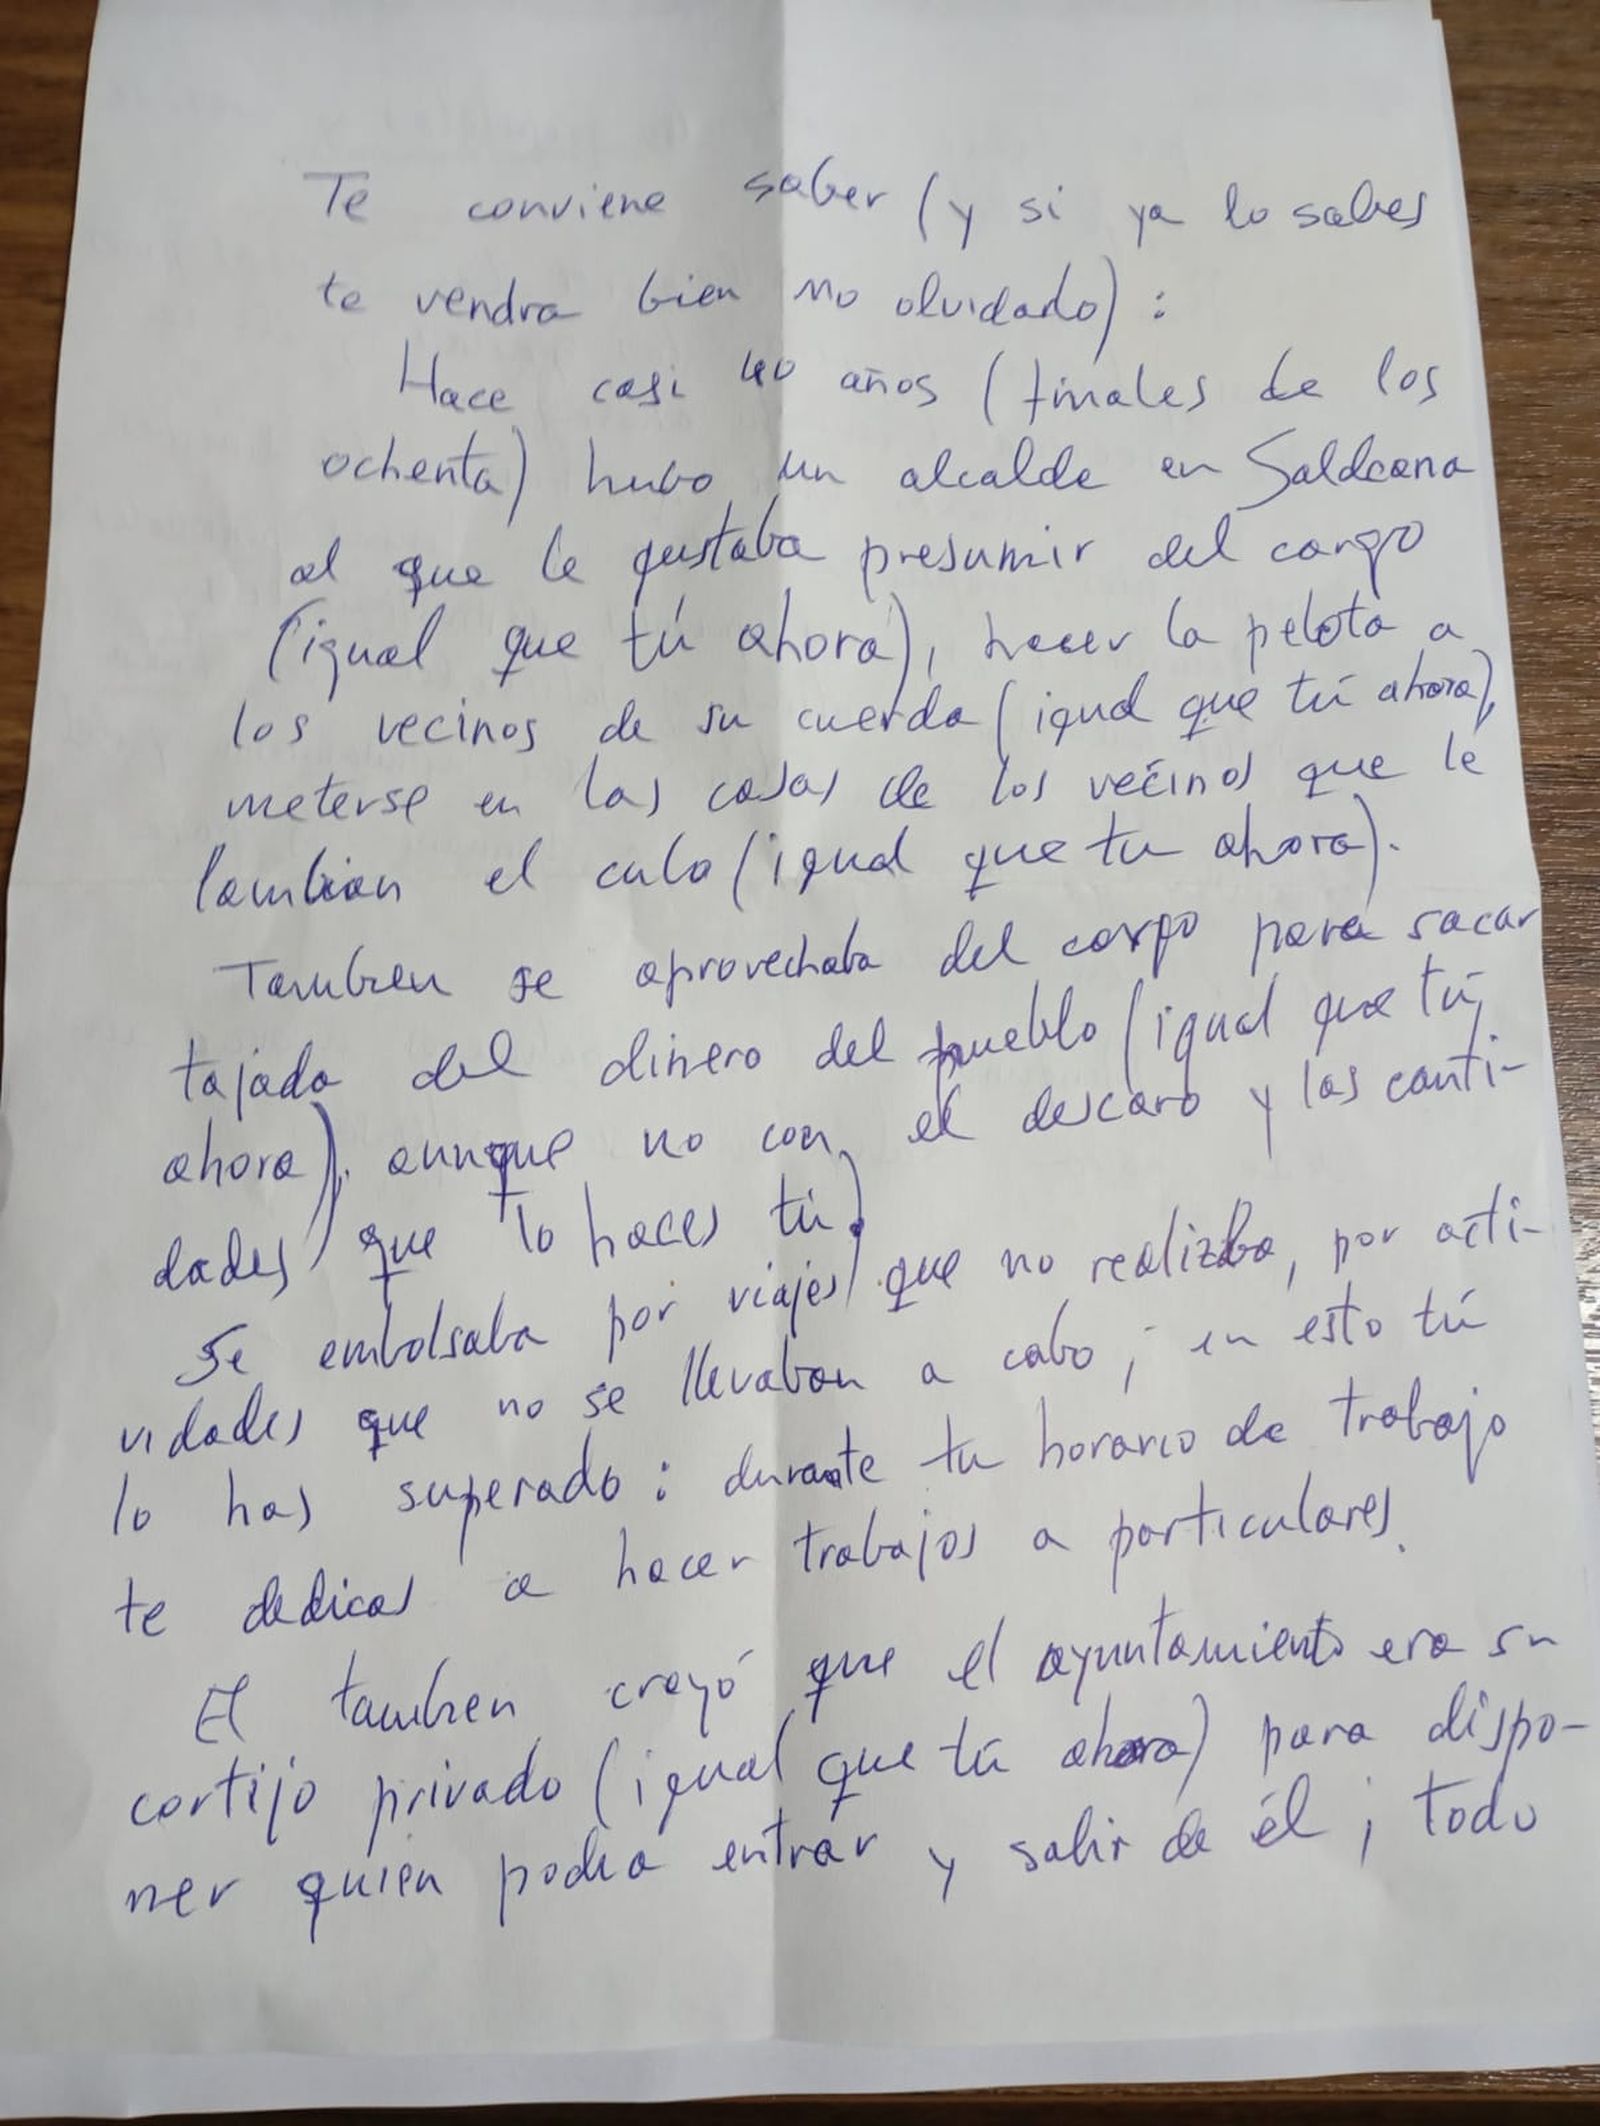 Te conviene saber (y si ya lo sabes
te vendra bien no olvidado) :
Hace casi 40 años (finales de los
ochenta) hubo un alcalde en Saldeana
al que le gustaba presumir del cargo
(igual que tú ahora), hacer la pelota a
los vecinos de su cuerda (igual que tú ahora),
meterse en las casas de los vecinos que le
lambian el culo (igual que tu ahora).
Tambien se aprovechaba del cargo para sacar
tajada del dinero del pueblo (igual que tú
ahora), aunque no con el descaro y las canti-
dades que lo haces tú).
Se embolsaba por viajes que no realizba, por acti-
vidades que no se llevaban a cabo ; en esto tú
lo has superado : durante tu horario de trabajo
te dedicas a hacer trabajos a particulares.
El tambien creyó que el ayuntamiento era su
cortijo privado (igual que tú ahora) para dispo-
ner quien podia entrar y salir de él ; todo